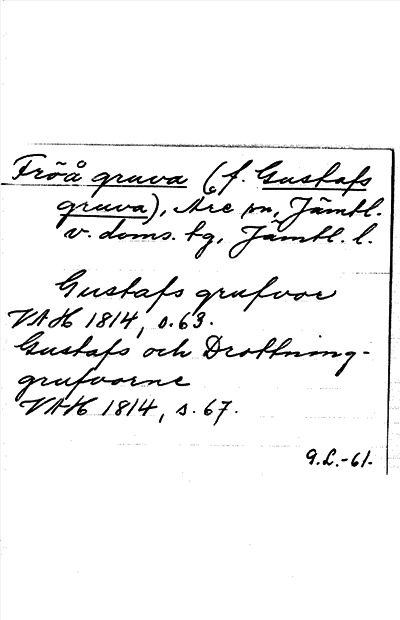 Fröå gruva (f. Gustafs
gruva), Åre sn, Jämtl.
v. doms. tg, Jämtl. l.
Gustafs grufvor
VAH 1814, s. 63.
Gustafs och Drottning-
grufvorne
VAH 1814, s. 67.
G.L.-61.